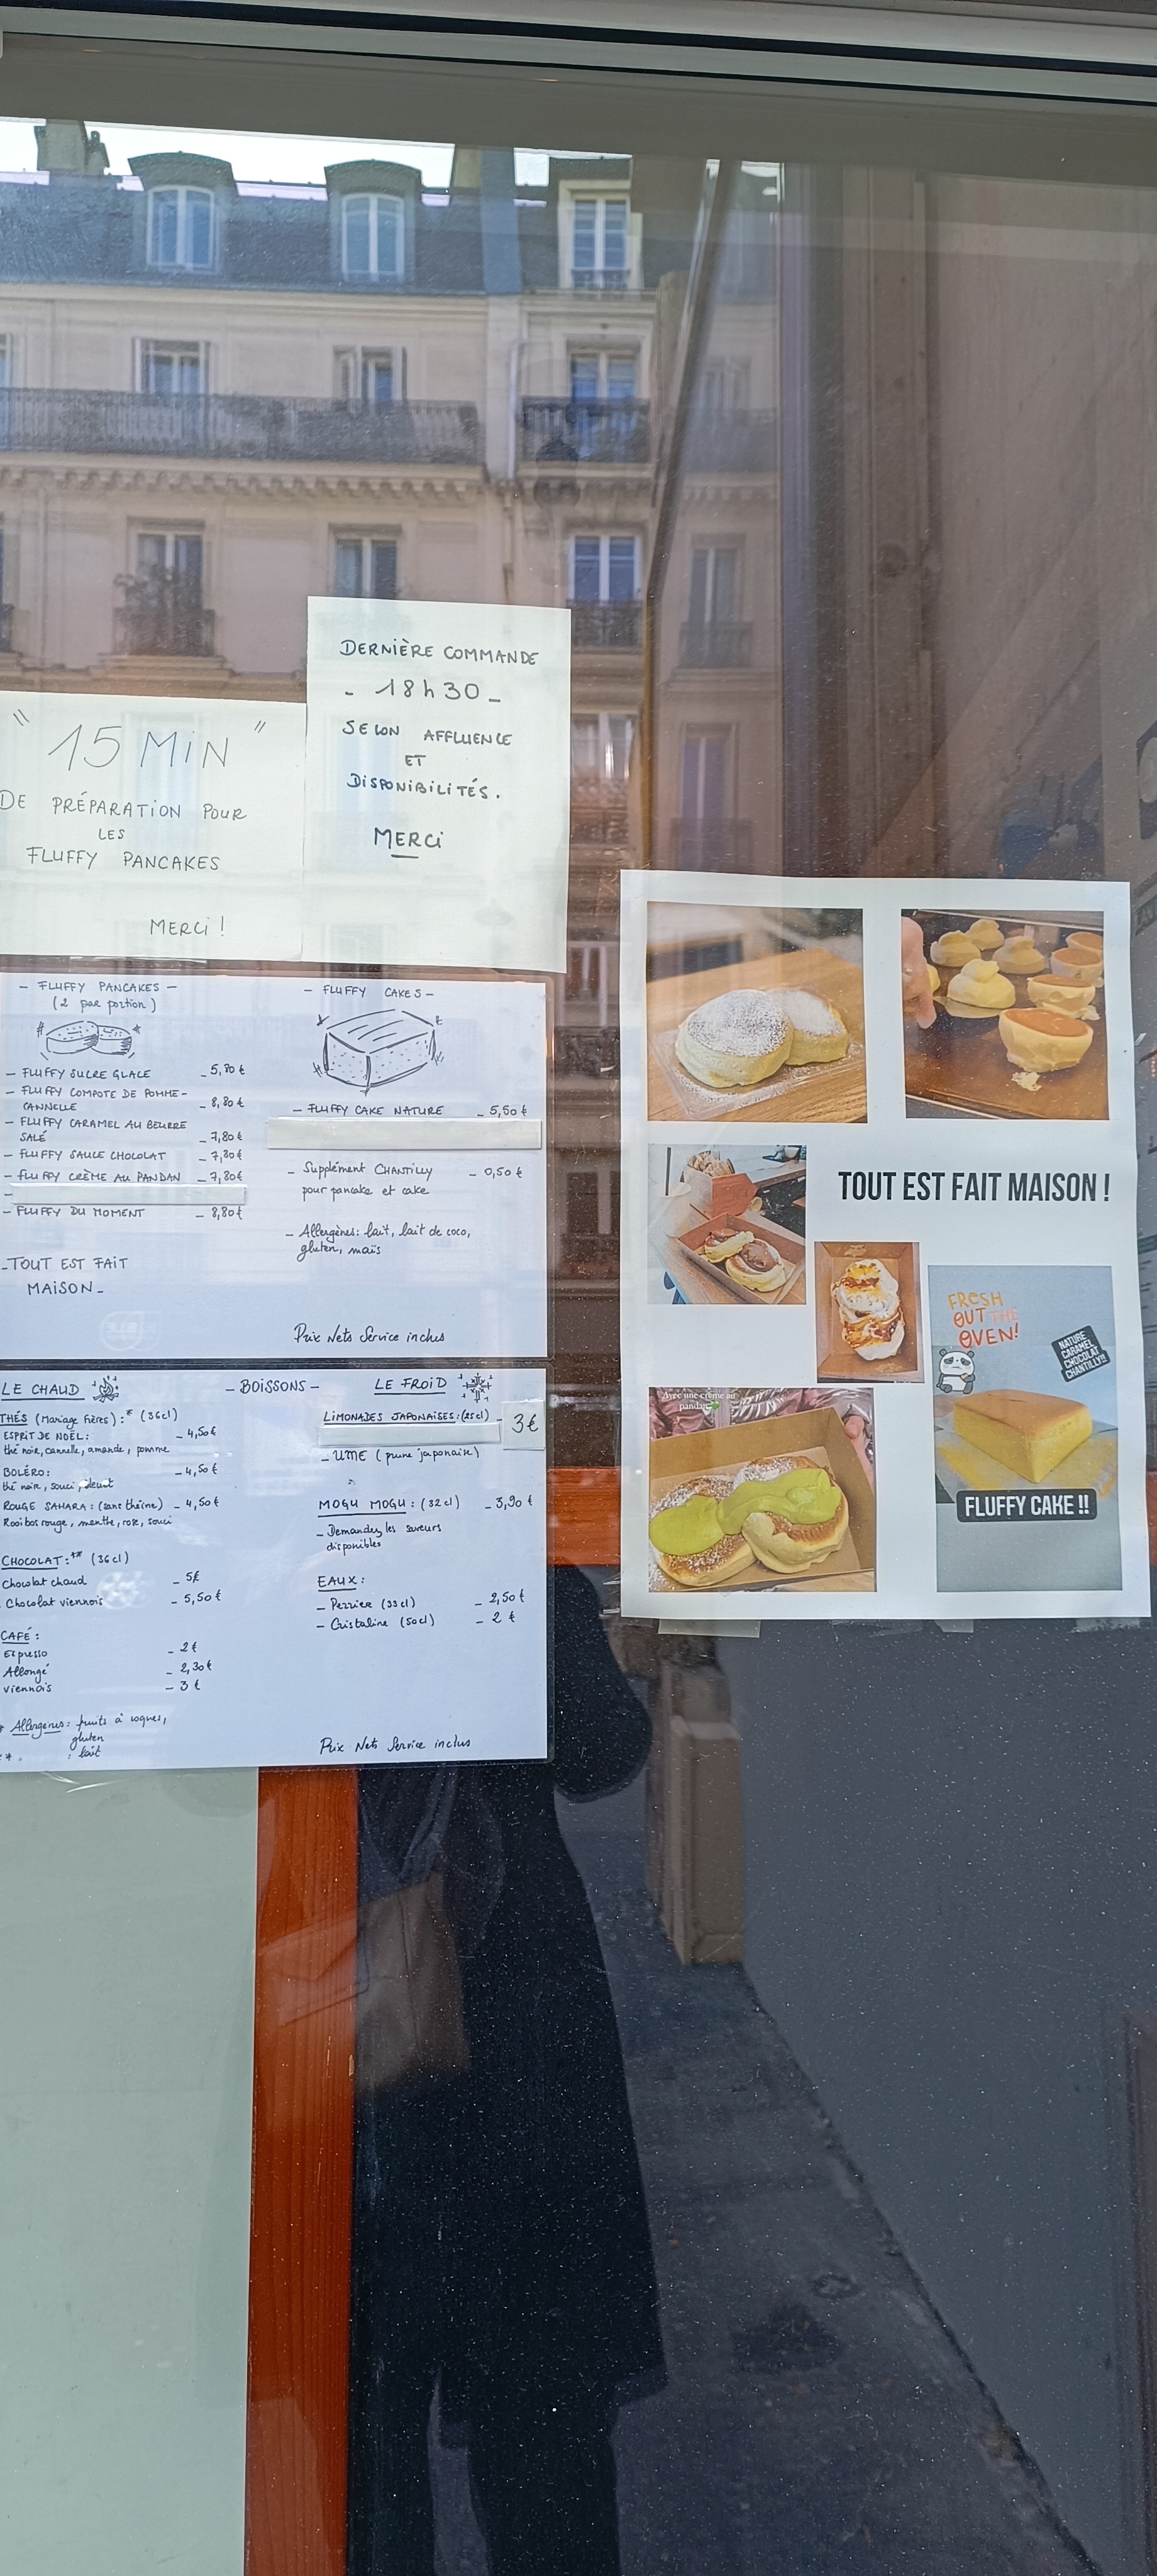 DERNIÈRE COMMANDE
- 18h30 -
SELON AFFLUENCE
ET
DISPONIBILITÉS.
MERCi
" 15 MiN "
DE PRÉPARATION POUR
LES
FLUFFY PANCAKES
MERCi !
- FLUFFY PANCAKES -
(2 par portion)
- FLUFFY SUCRE GLACE - 5,80 €
- FLUFFY COMPOTE DE POMME-
CANNELLE - 8,80 €
- FLUFFY CARAMEL AU BEURRE
SALÉ - 7,80 €
- FLUFFY SAUCE CHOCOLAT - 7,80 €
- FLUFFY CRÈME AU PANDAN - 7,80€
-
- FLUFFY DU MOMENT - 8,80€
- TOUT EST FAiT
MAiSON -
- FLUFFY CAKES -
- FLUFFY CAKE NATURE - 5,50 €
- Supplément CHANTILLY - 0,50 €
pour pancake et cake
- Allergènes: lait, lait de coco,
gluten, maïs
Prix Nets Service inclus
- BOiSSONS -
LE CHAUD
THÉS (Mariage Frères) :* (36cl)
ESPRIT DE NOËL : - 4,50€
thé noir, cannelle, amande, pomme
BOLÉRO: - 4,50 €
thé noir, souci,
ROUGE SAHARA : (sans théine) - 4,50€
Rooibos rouge, menthe, rose, souci
CHOCOLAT :** (36cl)
Chocolat chaud - 5€
- Chocolat viennois - 5,50€
CAFÉ :
Espresso - 2€
Allongé - 2,30€
viennois - 3 €
* Allergènes : fruits à coques,
gluten
** : lait
LE FROiD
LIMONADES JAPONAISES : (25cl) - 3€
- UME (prune japonaise)
MOGU MOGU : (32cl) - 3,90 €
- Demandez les saveurs
disponibles
EAUX :
- Perrier (33cl) - 2,50 €
- Cristaline (50cl) - 2 €
Prix Nets Service inclus
TOUT EST FAIT MAISON !
FRESH
OUT THE
OVEN!
NATURE
CARAMEL
CHOCOLAT
CHANTILLY!!
FLUFFY CAKE !!
Avec une crème au
pandan